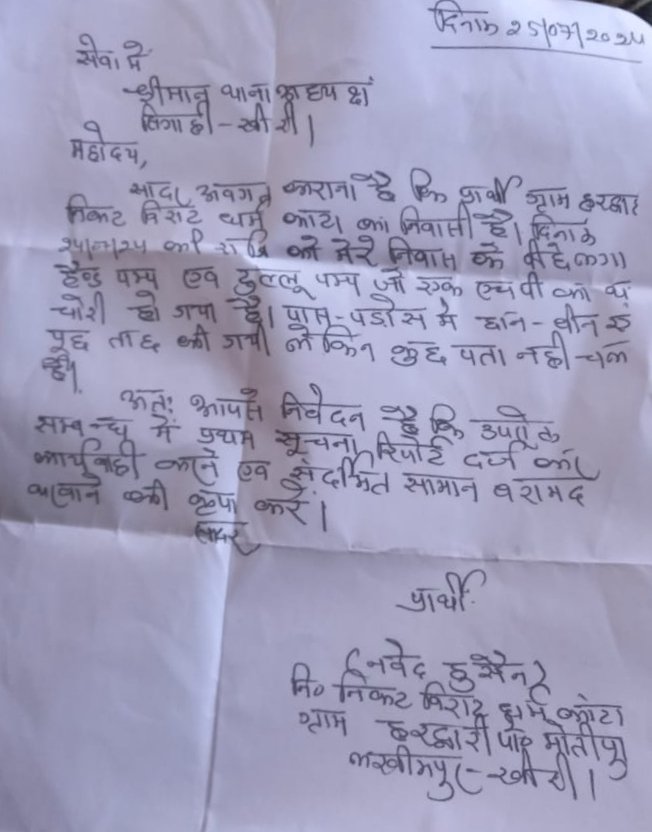 दिनांक 25/07/2024
सेवा में
श्रीमान थाना अध्यक्ष
निगाही - खीरी।
महोदय,
सादर अवगत कराना है कि प्रार्थी ग्राम हरद्वारी
निकट विराट धर्म कांटा का निवासी है। दिनांक
की रात्रि को मेरे निवास के पीछे लगा
हैण्ड पम्प एवं टुल्लू पम्प जो एक एचपी का था
चोरी हो गया है। पास-पड़ोस में छान-बीन
पूछ ताछ की गयी लेकिन कुछ पता नहीं चल
अतः आपसे निवेदन है कि उपरोक्त
सम्बन्ध में प्रथम सूचना रिपोर्ट दर्ज कर
कार्यवाही करने एवं संदर्भित सामान बरामद
करवाने की कृपा करें।
सादर
प्रार्थी
(नवेद हुसैन)
नि० निकट विराट धर्म कांटा
ग्राम हरद्वारी पो० मोतीपुर
लखीमपुर - खीरी।